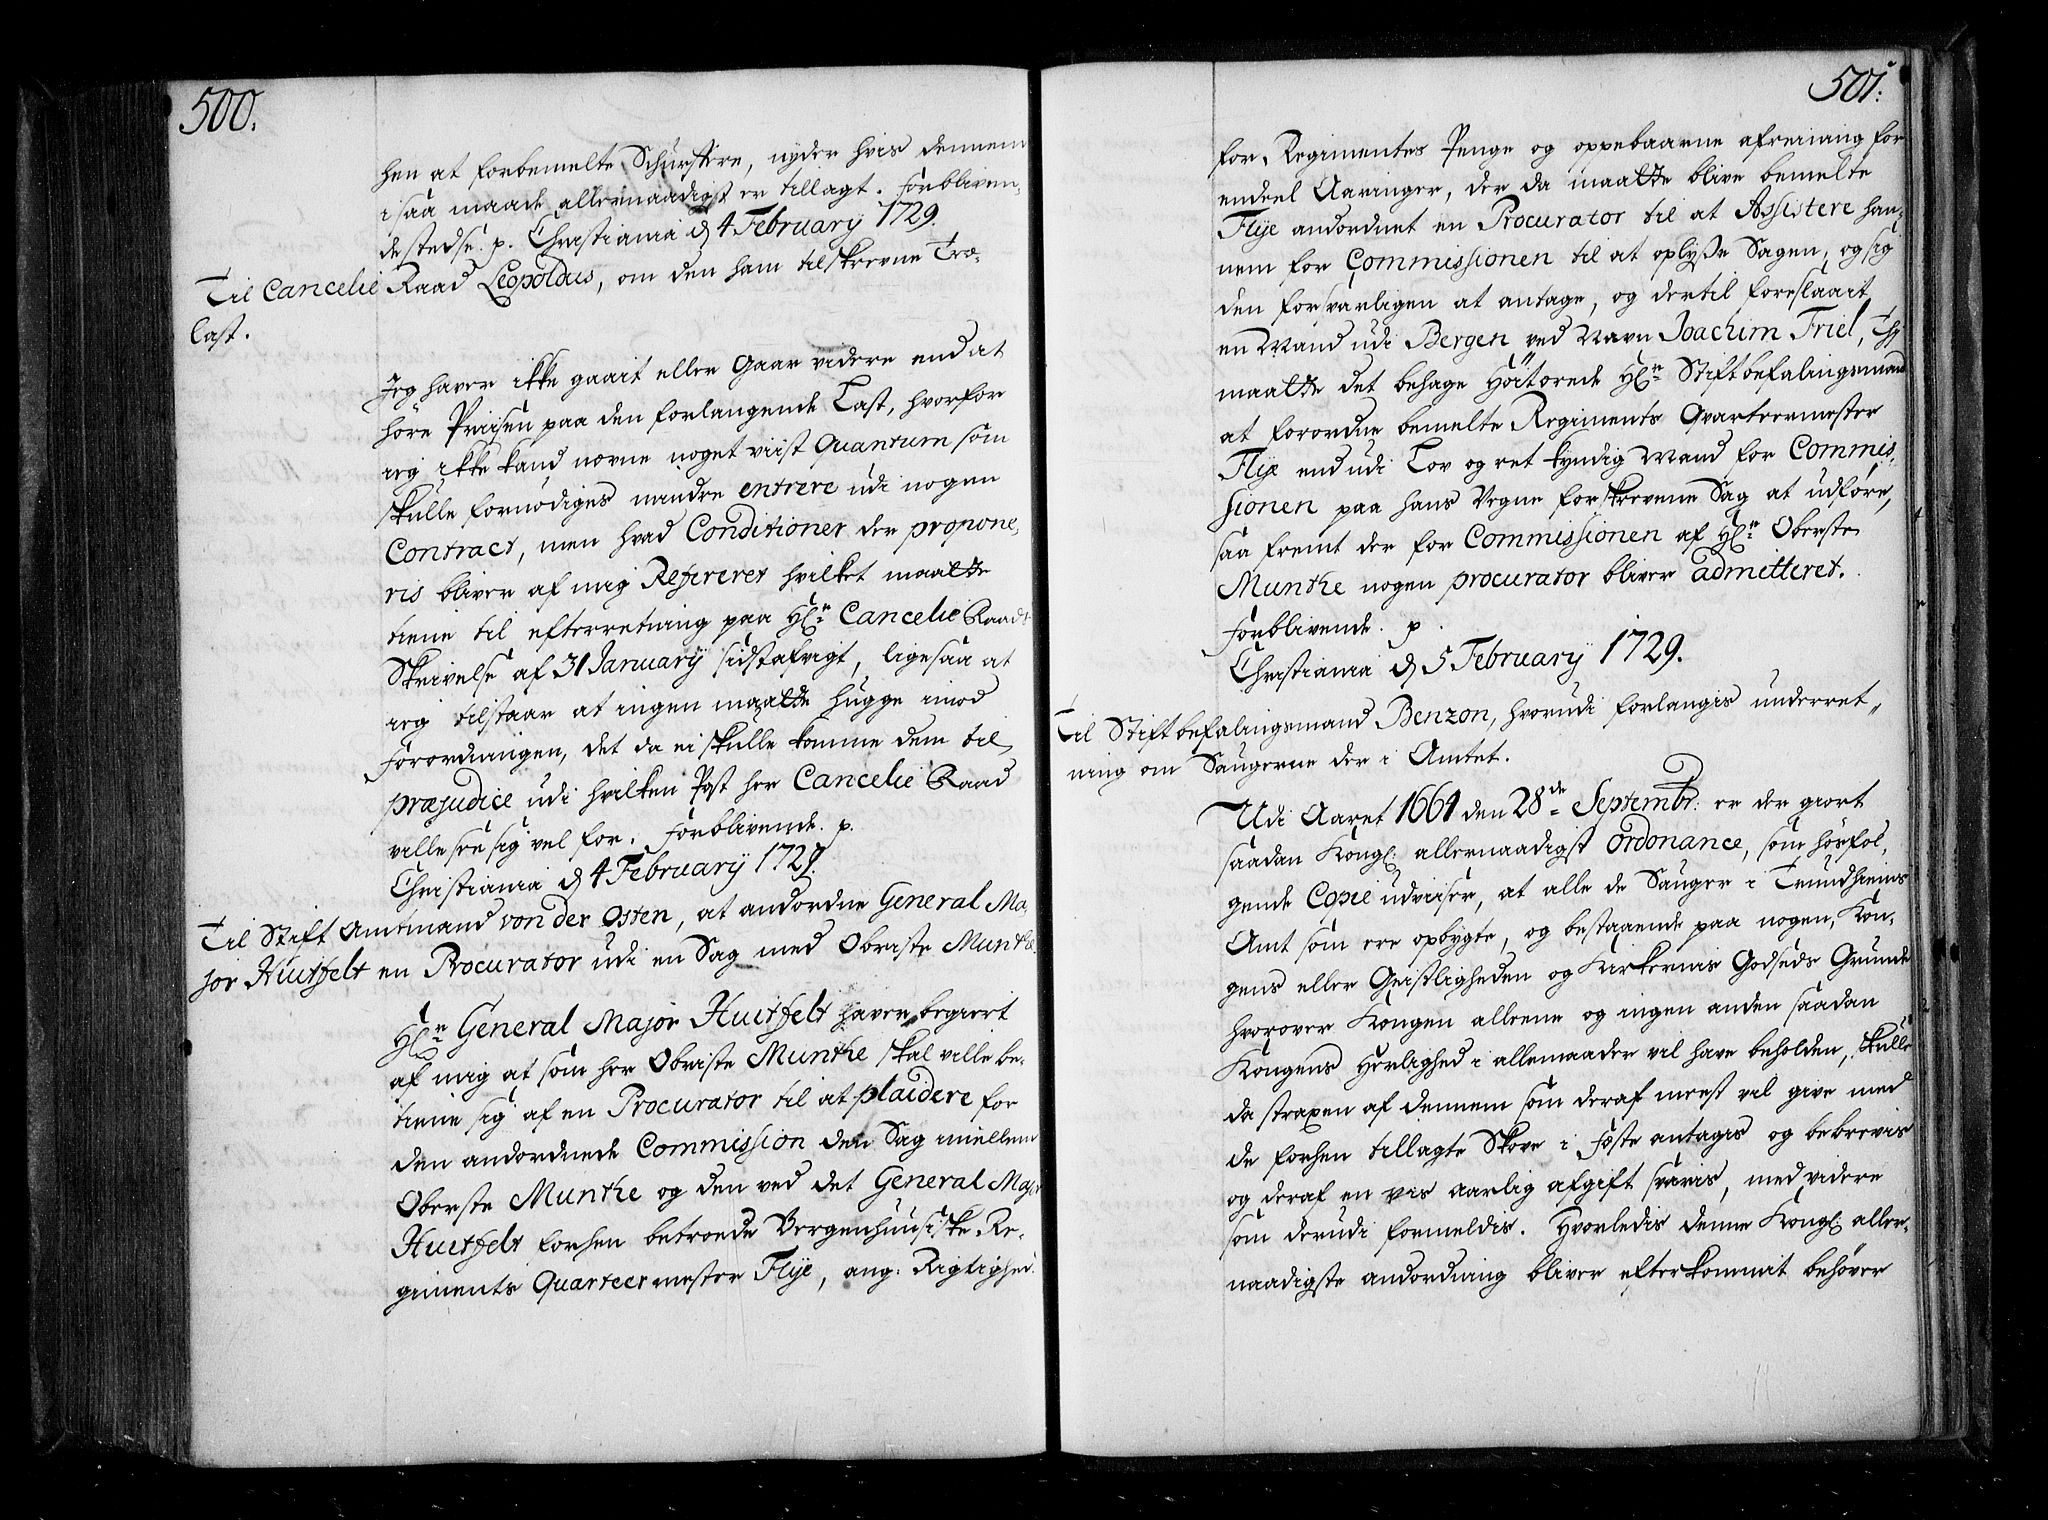 500.
hen at forbemelte Schürstkere, nyder hvis dennem
i saa maade allernaadigst er tillagt. Forbliven-
de stedse. p. Christiania d 4 February 1729.
Til Cancelie Raad Leopoldus, om den ham tilskrevne Træ-
last.
Jeg haver ikke gaait eller gaar videre end at
høre Priisen paa den forlangende Last, hvorfor
jeg ikke kand nævne noget viist quantum som
skulle fornødiges mindre entrere udi nogen
Contract, men hvad Conditioner der propone-
ris bliver af mig Refereret hvilket maatte
tiene til efterretning paa Hr Cancelie Raads
Skrivelse af 31 January sidstafvigt, ligesaa at
jeg tilstaar at ingen maatte hugge imod
Forordningen, det da ei skulle komme dem til
præjudice udi hvilken Post her Cancelie Raad
ville see sig vel for. Forblivende. p.
Christiania d 4 February 1729.
Til Stift Amtmand von der Osten, at andordne General Ma-
jor Huitfelt en Procurator udi en Sag med Obriste Munthe.
Hr General Major Huitfelt haver begiert
af mig at som her Obriste Munthe skal ville be-
tiene sig af en Procurator til at plaidere for
den andordnede Commission den Sag imellem
Oberste Munthe og den ved det General Major
Huitfelt forhen betroede Bergenhuusiske Re-
giments Quarteermester Flye, ang: Rigtighed
501.
for Regimentes Penge og oppebaarne afreining for
endeel Aaringer, der da maatte blive bemelte
Flye andordnet en Procurator til at Assistere han-
nem for Commissionen til at oplyse Sagen, og sig
den forsvarligen at antage, og dertil foreslaait
en Mand udi Bergen ved Navn Joachim Friel, Thj
maatte det behage Høitærede Hr Stiftbefalingsmand
at forordne bemelte Regiments Qvarteermester
Flye end udi Lov og ret kyndig Mand for Commis-
sionen paa hans Vegne forskrevene Sag at udføre,
saa fremt der for Commissionen af Hr Oberste
Munthe nogen procurator bliver admitteret.
Forblivende. p
Christiania d 5 February 1729.
Til Stiftbefalingsmand Benzon, hvorudi forlangis underret-
ning om Saugerne der i Amtet.
Udi Aaret 1661 den 28de Septembr: er der giort
saadan Kongl: allernaadigst ordonance, som hosføl-
gende Copie udviiser, at alle de Sauger i Trundhiems
Amt som ere opbygte, og bestaaende paa nogen Kon-
gens eller Geistligheden og Kirkernis Godseds Grunde
hvorover Kongen alleene og ingen anden saadan
Kongens Herlighed i allemaader vil have beholden, skulle
da straxen af dennem som deraf meest vil give med
de forhen tillagte Skove i Fæste antagis og bebrevis
og deraf en vis aarlig afgift svaris, med videre
som derudi formeldis. Hvorledis denne Kongl: aller-
naadigste andordning bliver efterkommit behøver